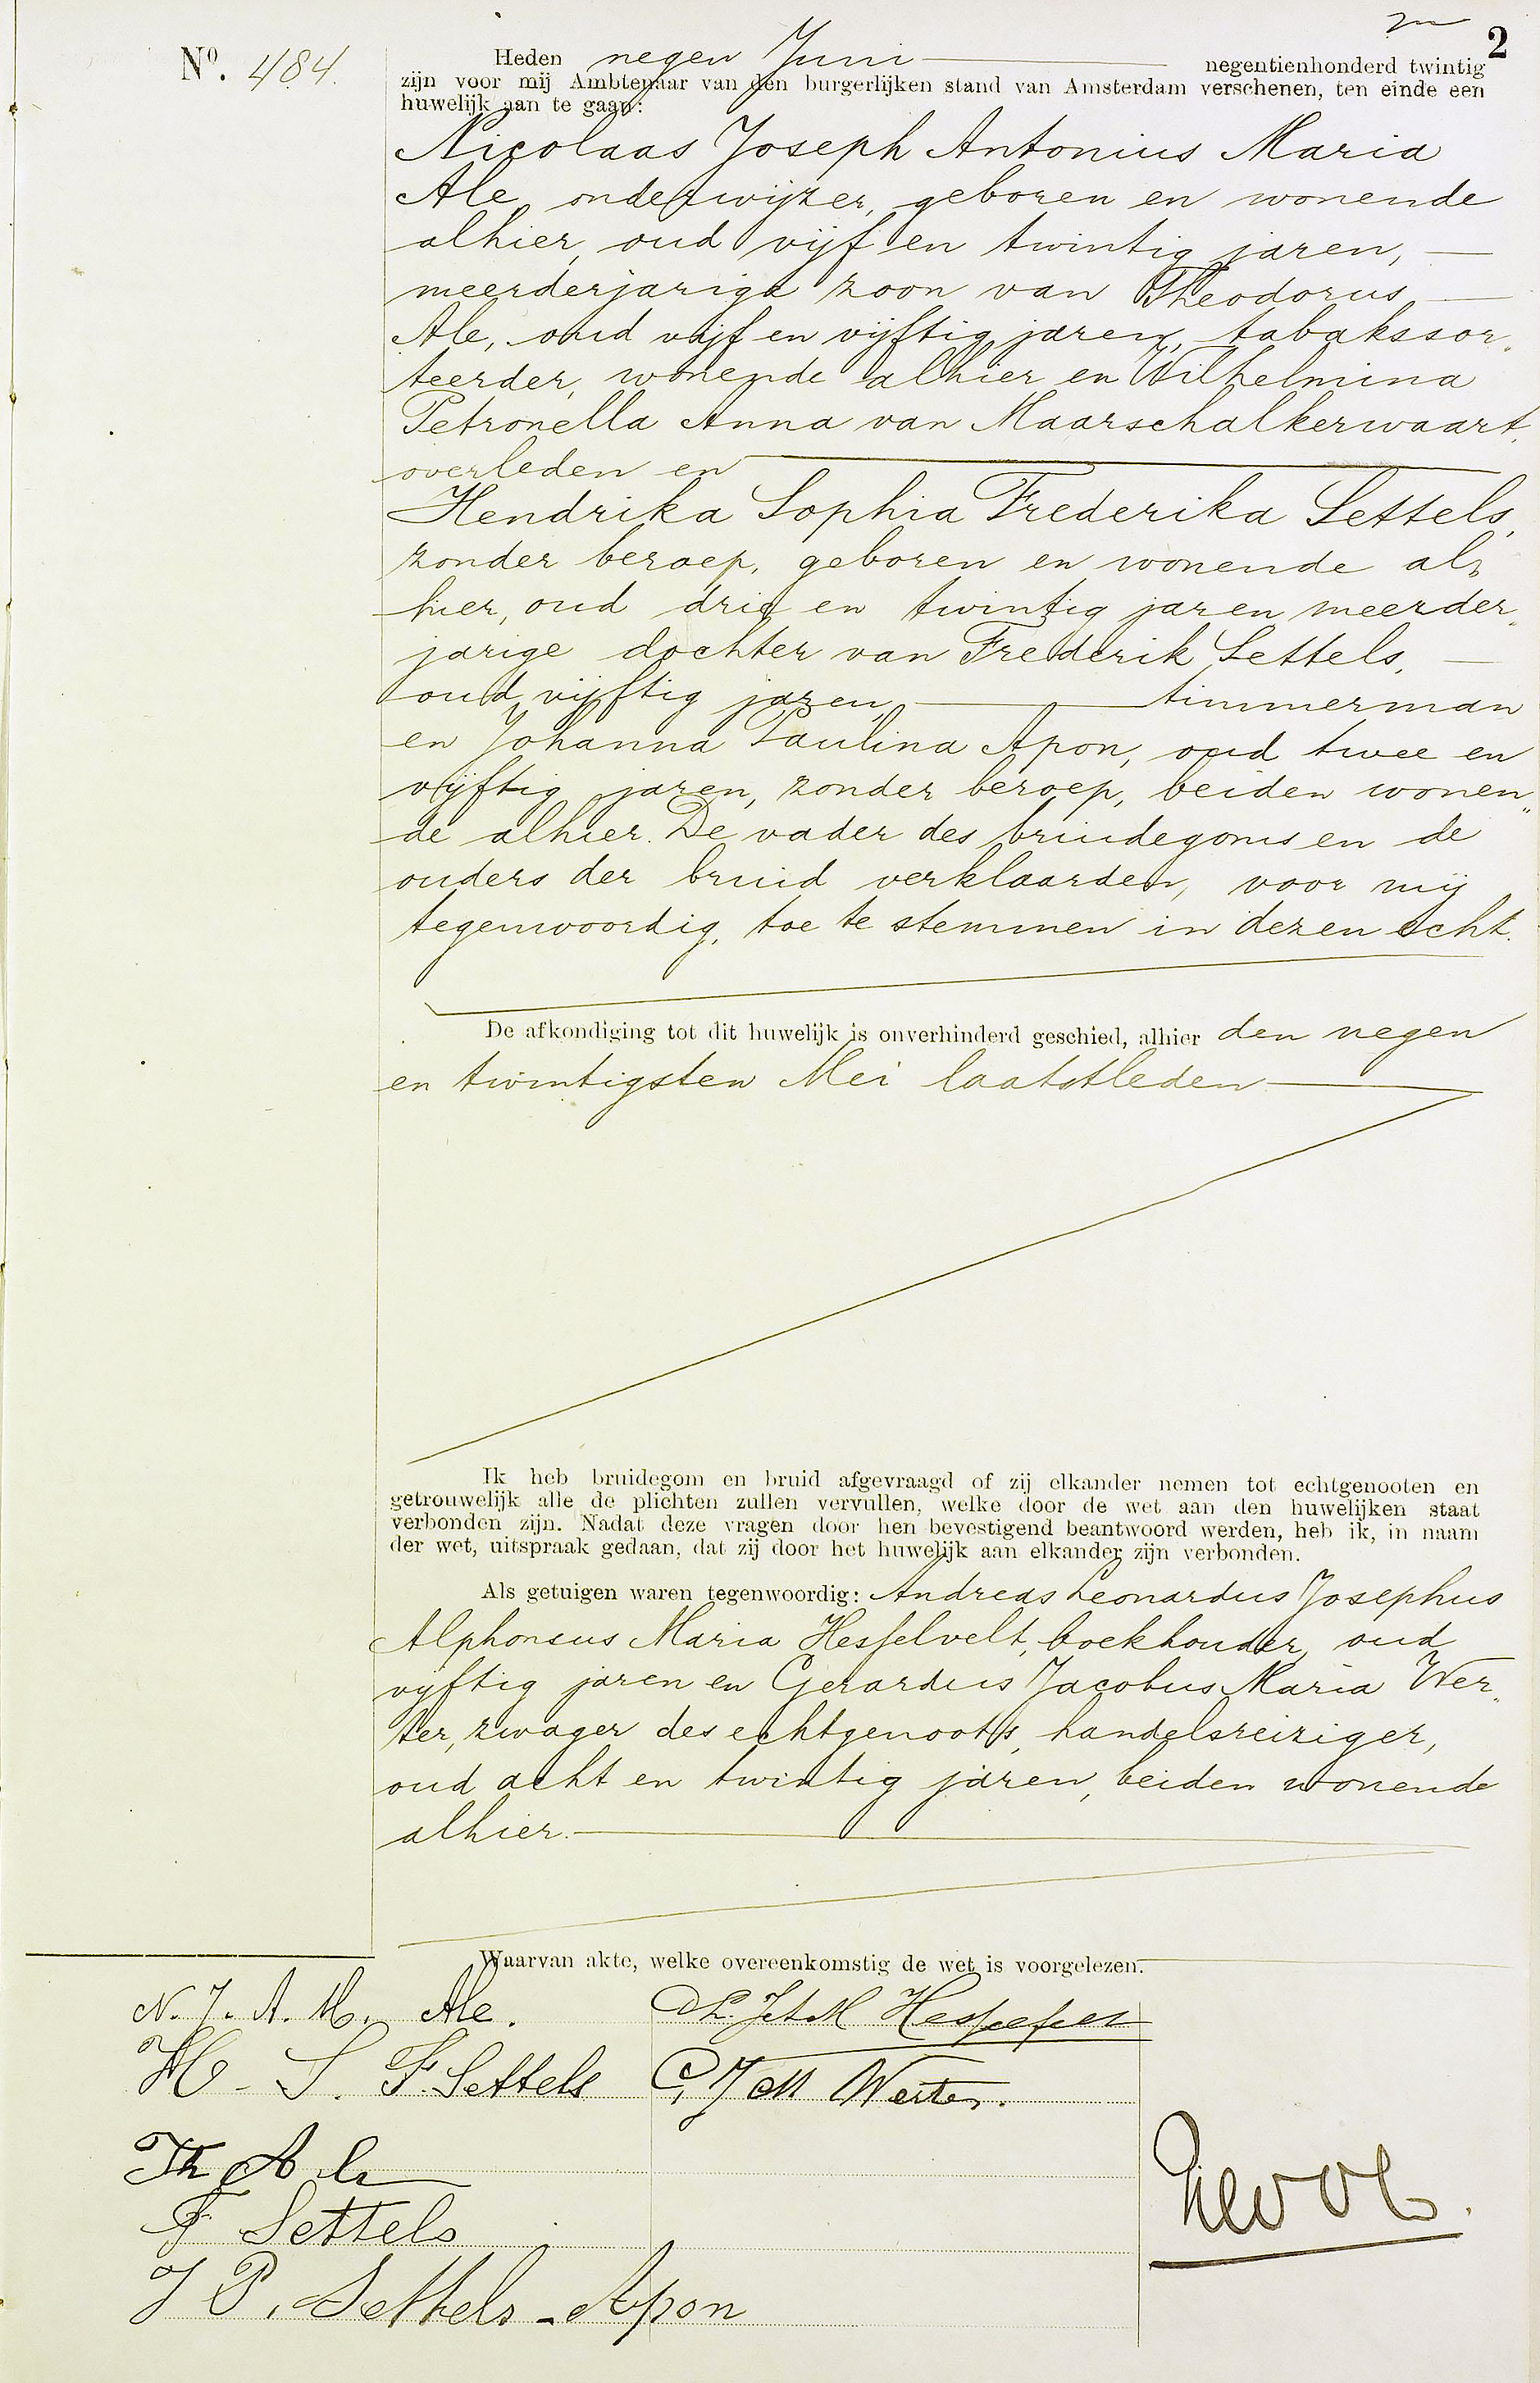 2
Nº. 484.
Heden negen Juni negentienhonderd twintig
zijn voor mij Ambtenaar van den burgerlijken stand van Amsterdam verschenen, ten einde een
huwelijk aan te gaan:
Nicolaas Joseph Antonius Maria
Ale, onderwijzer, geboren en wonende
alhier, oud vijf en twintig jaren,
meerderjarige zoon van Theodorus
Ale, oud vijf en vijftig jaren, tabakssor„
teerder, wonende alhier en Wilhelmina
Petronella Anna van Maarschalkerwaart,
overleden en
Hendrika Sophia Frederika Settels,
zonder beroep, geboren en wonende al„
hier, oud drie en twintig jaren meerder„
jarige dochter van Frederik Settels,
oud vijftig jaren, timmerman
en Johanna Paulina Apon, oud twee en
vijftig jaren, zonder beroep, beiden wonen„
de alhier. De vader des bruidegoms en de
ouders der bruid verklaarden, voor mij
tegenwoordig, toe te stemmen in dezen echt.
De afkondiging tot dit huwelijk is onverhinderd geschied, alhier den negen
en twintigsten Mei laatstleden
Ik heb bruidegom en bruid afgevraagd of zij elkander nemen tot echtgenooten en
getrouwelijk alle de plichten zullen vervullen, welke door de wet aan den huwelijken staat
verbonden zijn. Nadat deze vragen door hen bevestigend beantwoord werden, heb ik, in naam
der wet, uitspraak gedaan, dat zij door het huwelijk aan elkander zijn verbonden.
Als getuigen waren tegenwoordig: Andreas Leonardus Josephus
Alphonsus Maria Hesselvelt, boekhouder, oud
vijftig jaren en Gerardus Jacobus Maria Wer„
ter, zwager des echtgenoots, handelsreiziger,
oud acht en twintig jaren, beiden wonende
alhier.
Waarvan akte, welke overeenkomstig de wet is voorgelezen.
N. J. A. M. Ale.
H. S. F. Settels
G J M Werter.
Th Ale
F Settels
J P. Settels - Apon